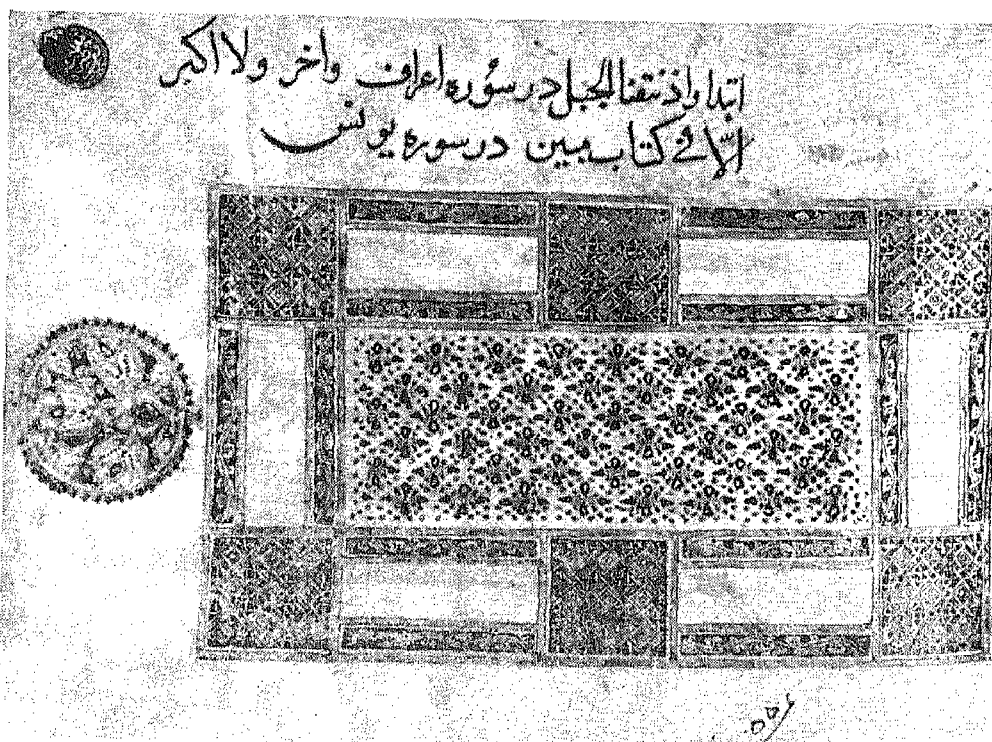 ابتدا واذ نتقنا الجبل در سوره اعراف واخر ولا اکبر
الا في كتاب مبين در سوره یونس